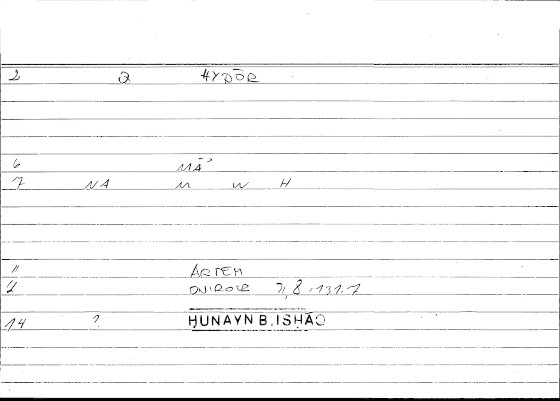 2 2 HYDŌR
6 MĀʾ
7 NA M W H
11 ARTEM
U ONIROCR 71,8 = 131.7
14 ? HUNAYN B. ISHĀQ